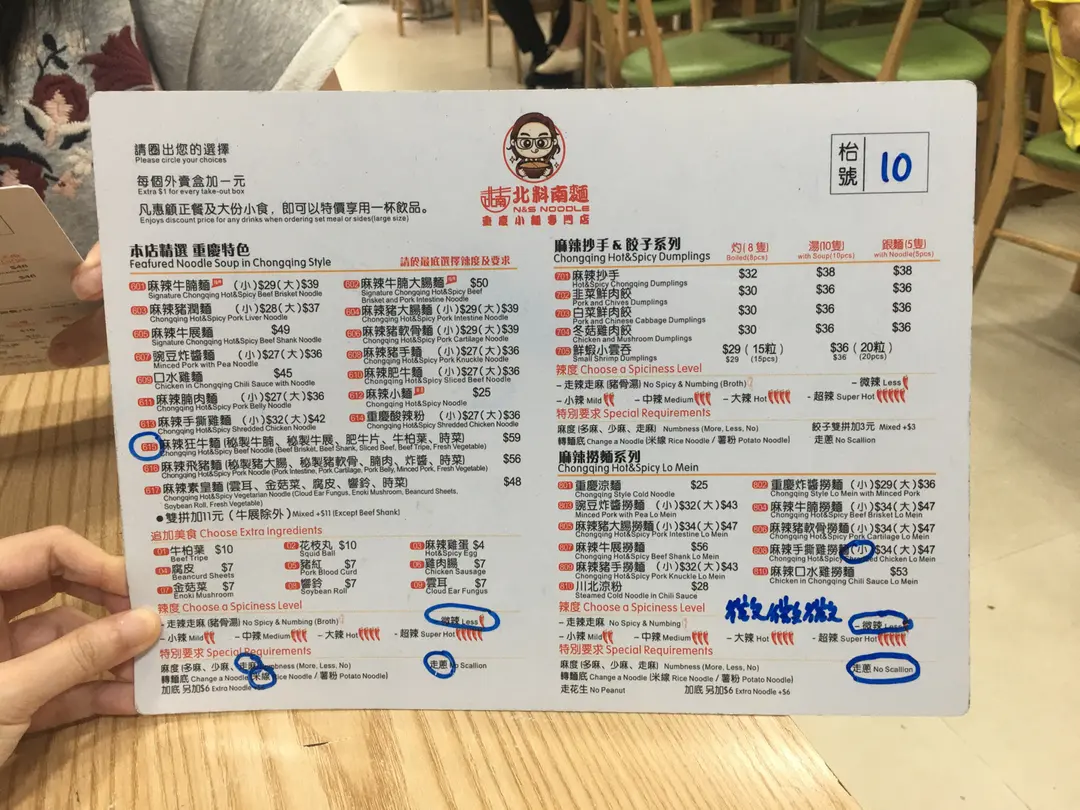 請圈出您的選擇
Please circle your choices
每個外賣盒加一元
Extra $1 for every take-out box
凡惠顧正餐及大份小食，即可以特價享用一杯飲品。
Enjoys discount price for any drinks when ordering set meal or sides(large size)
北南
北斗南麵
N&S NOODLE
重慶小麵專門店
枱號 10
本店精選 重慶特色 請於最底選擇辣度及要求
Feafured Noodle Soup in Chongqing Style
601 麻辣牛腩麵 (小)$29(大)$39
Signature Chongqing Hot&Spicy Beef Brisket Noodle
602 麻辣牛腩大腸麵 $50
Signature Chongqing Hot&Spicy Beef Brisket and Pork Intestine Noodle
603 麻辣豬潤麵 (小)$28(大)$37
Chongqing Hot&Spicy Pork Liver Noodle
604 麻辣豬大腸麵(小)$29(大)$39
Chongqing Hot&Spicy Pork Intestine Noodle
605 麻辣牛展麵 $49
Signature Chongqing Hot&Spicy Beef Shank Noodle
606 麻辣軟骨麵(小)$29(大)$39
Chongqing Hot&Spicy Pork Cartilage Noodle
607 豌豆炸醬麵 (小)$27(大)$36
Minced Pork with Pea Noodle
608 麻辣豬手麵 (小)$27(大)$36
Chongqing Hot&Spicy Pork Knuckle Noodle
609 口水雞麵 $45
Chicken in Chongqing Chili Sauce with Noodle
610 麻辣肥牛麵 (小)$27(大)$36
Chongqing Hot&Spicy Sliced Beef Noodle
611 麻辣腩肉麵 (小)$27(大)$36
Chongqing Hot&Spicy Pork Belly Noodle
612 麻辣小麵 $25
Chongqing Hot&Spicy Noodle
613 麻辣手撕雞麵 (小)$32(大)$42
Chongqing Hot&Spicy Shredded Chicken Noodle
614 重慶酸辣粉 (小)$27(大)$36
Chongqing Hot&Spicy Shredded Chicken Noodle
615 麻辣狂牛麵(秘製牛腩、秘製牛展、肥牛片、牛柏葉、時菜) $59
Chongqing Hot&Spicy Beef Noodle (Beef Brisket, Beef Shank, Sliced Beef, Beef Tripe, Fresh Vegetable)
616 麻辣飛豬麵(秘製豬大腸、秘製豬軟骨、腩肉、炸醬、時菜) $56
Chongqing Hot&Spicy Pork Noodle (Pork Intestine, Pork Cartilage, Pork Belly, Minced Pork, Fresh Vegetable)
617 麻辣素皇麵(雲耳、金菇菜、腐皮、響鈴、時菜) $48
Chongqing Hot&Spicy Vegetarian Noodle (Cloud Ear Fungus, Enoki Mushroom, Beancurd Sheets, Soybean Roll, Fresh Vegetable)
● 雙拼加11元 (牛展除外) Mixed +$11 (Except Beef Shank)
追加美食 Choose Extra Ingredients
01 牛柏葉 $10
Beef Tripe
02 花枝丸 $10
Squid Ball
03 麻辣雞蛋 $4
Hot&Spicy Egg
04 腐皮 $7
Beancurd Sheets
05 豬紅 $7
Pork Blood Curd
06 雞肉腸 $7
Chicken Sausage
07 金菇菜 $7
Enoki Mushroom
08 響鈴 $7
Soybean Roll
09 雲耳 $7
Cloud Ear Fungus
辣度 Choose a Spiciness Level
– 走辣走麻 (豬骨湯) No Spicy & Numbing (Broth) – 微辣 Less
– 小辣 Mild – 中辣 Medium – 大辣 Hot – 超辣 Super Hot
特別要求 Special Requirements
麻度 (多麻、少麻、走麻) Numbness (More, Less, No) 走蔥 No Scallion
轉麵底 Change a Noodle (米線 Rice Noodle / 薯粉 Potato Noodle)
加底 另加$6 Extra Noodle +$6
麻辣抄手 & 餃子系列 灼(8隻) 湯(10隻) 跟麵(5隻)
Chongqing Hot&Spicy Dumplings Boiled(8pcs) with Soup(10pcs) with Noodle(5pcs)
701 麻辣抄手 $32 $38 $38
Hot&Spicy Chongqing Dumplings
702 韮菜鮮肉餃 $30 $36 $36
Pork and Chives Dumplings
703 白菜鮮肉餃 $30 $36 $36
Pork and Chinese Cabbage Dumplings
704 冬菇雞肉餃 $30 $36 $36
Chicken and Mushroom Dumplings
705 鮮蝦小雲吞 $29 (15粒) $36 (20粒)
Small Shrimp Dumplings $29 (15pcs) $36 (20pcs)
辣度 Choose a Spiciness Level
– 走辣走麻 (豬骨湯) No Spicy & Numbing (Broth) – 微辣 Less
– 小辣 Mild – 中辣 Medium – 大辣 Hot – 超辣 Super Hot
特別要求 Special Requirements
麻度 (多麻、少麻、走麻) Numbness (More, Less, No) 餃子雙拼加3元 Mixed +$3
轉麵底 Change a Noodle (米線 Rice Noodle / 薯粉 Potato Noodle) 走蔥 No Scallion
麻辣撈麵系列
Chongqing Hot&Spicy Lo Mein
801 重慶涼麵 $25
Chongqing Style Cold Noodle
802 重慶炸醬撈麵(小)$29(大)$36
Chongqing Style Lo Mein with Minced Pork
803 豌豆炸醬撈麵 (小)$32(大)$43
Minced Pork with Pea Lo Mein
804 麻辣牛腩撈麵(小)$34(大)$47
Chongqing Hot&Spicy Beef Brisket Lo Mein
805 麻辣豬大腸撈麵(小)$34(大)$47
Chongqing Hot&Spicy Pork Intestine Lo Mein
806 麻辣軟骨撈麵(小)$34(大)$47
Chongqing Hot&Spicy Pork Cartilage Lo Mein
807 麻辣牛展撈麵 $56
Chongqing Hot&Spicy Beef Shank Lo Mein
808 麻辣手撕雞撈麵(小)$34(大)$47
Chongqing Hot&Spicy Shredded Chicken Lo Mein
809 麻辣豬手撈麵 (小)$32(大)$43
Chongqing Hot&Spicy Pork Knuckle Lo Mein
810 麻辣口水雞撈麵 $53
Chicken in Chongqing Chili Sauce Lo Mein
810 川北涼粉 $28
Steamed Cold Noodle in Chili Sauce
辣度 Choose a Spiciness Level
微微微
– 走辣走麻 No Spicy & Numbing – 微辣 Less
– 小辣 Mild – 中辣 Medium – 大辣 Hot – 超辣 Super Hot
特別要求 Special Requirements
麻度 (多麻、少麻、走麻) Numbness (More, Less, No) 走蔥 No Scallion
轉麵底 Change a Noodle (米線 Rice Noodle / 薯粉 Potato Noodle)
走花生 No Peanut 加底 另加$6 Extra Noodle +$6